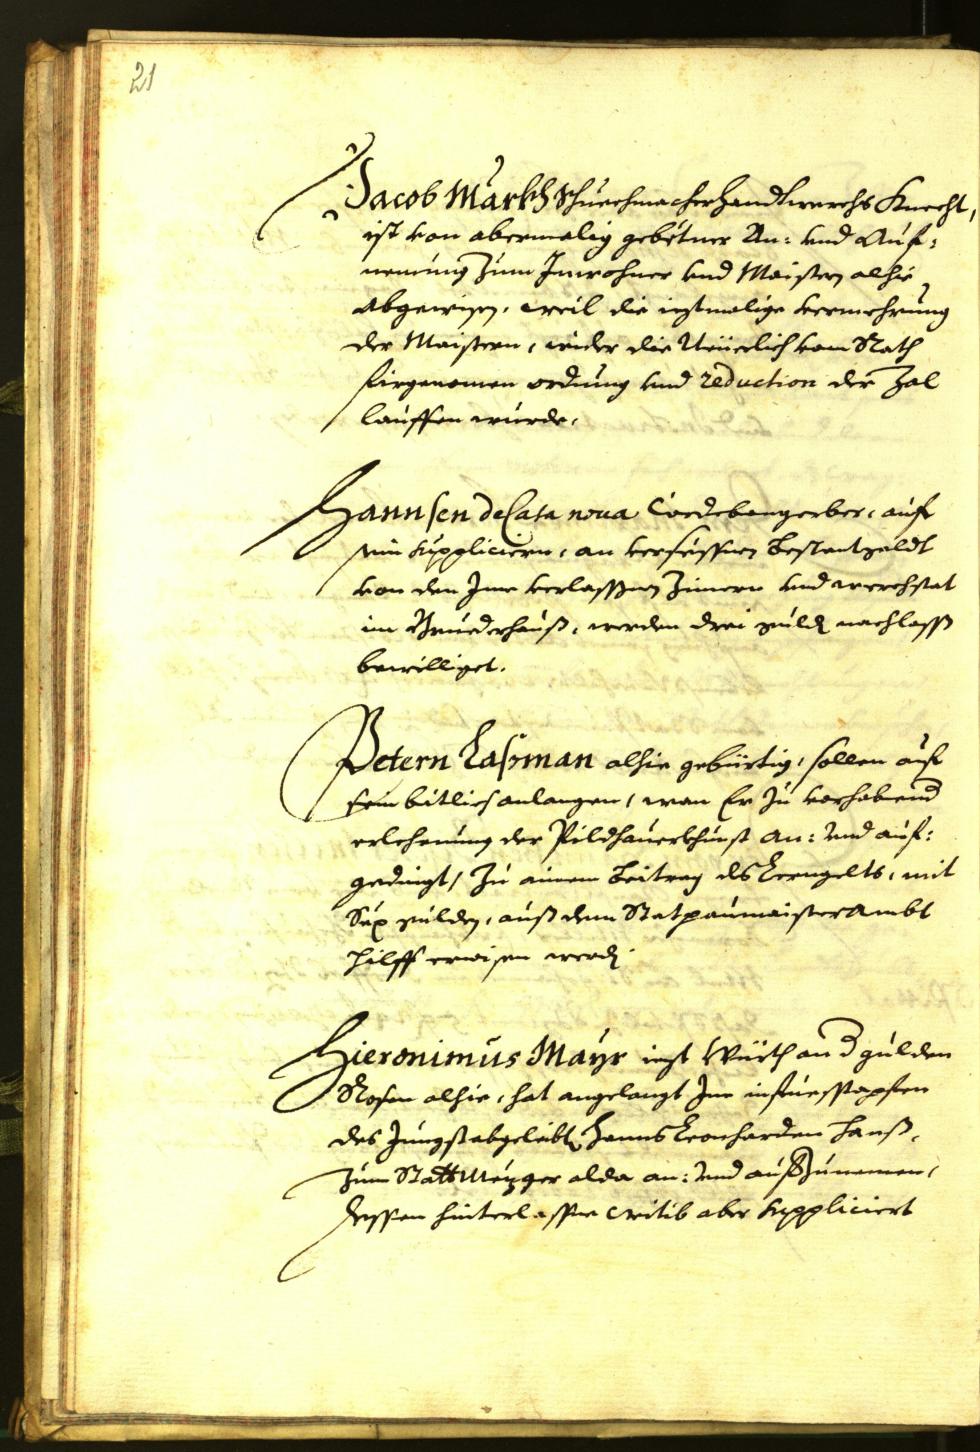 21
Jacob Märkh Schuechmacherhandtwerchs Knecht,
ist von abermalig gebetner An: und Auf:
nemung zum Inwohner und Maister alhie
abgewisen, weil die iezmalige vermehrung
der Maistern, wider die Neüerlich vom Rath
firgenomen ordnung und reduction der Zal
lauffen wurde.
Hannsen de Casa noua Cordebangerber, auf
sein suppliciern, an verseßnen Bestantgeldt
von den Ime verlaßnen Zimern und werchstat
im Bruederhauß, werden drei guld nachlaß
bewilliget.
Petern Laßman alhie gebürtig, sollen auf
sein bitlichs anlangen, wan Er zu vorhabend
erlehrnung der Pildhauerkhunst an: und auf:
gedingt, zu ainem Beitrag des Lerngelts, mit
Sex gulden, auß dem Statpaumaisterambt
hilff erwisen werd.
Hieronimus Mayr iezt Würth an d gulden
Rosen alhie, hat angelangt Ine in fuesstapfen
des Jungst abgeleibt Hanns Leonharden Hanß,
zum Statt Mezger alda an: und aufzunemen,
dessen hinterlassne Witib aber suppliciert